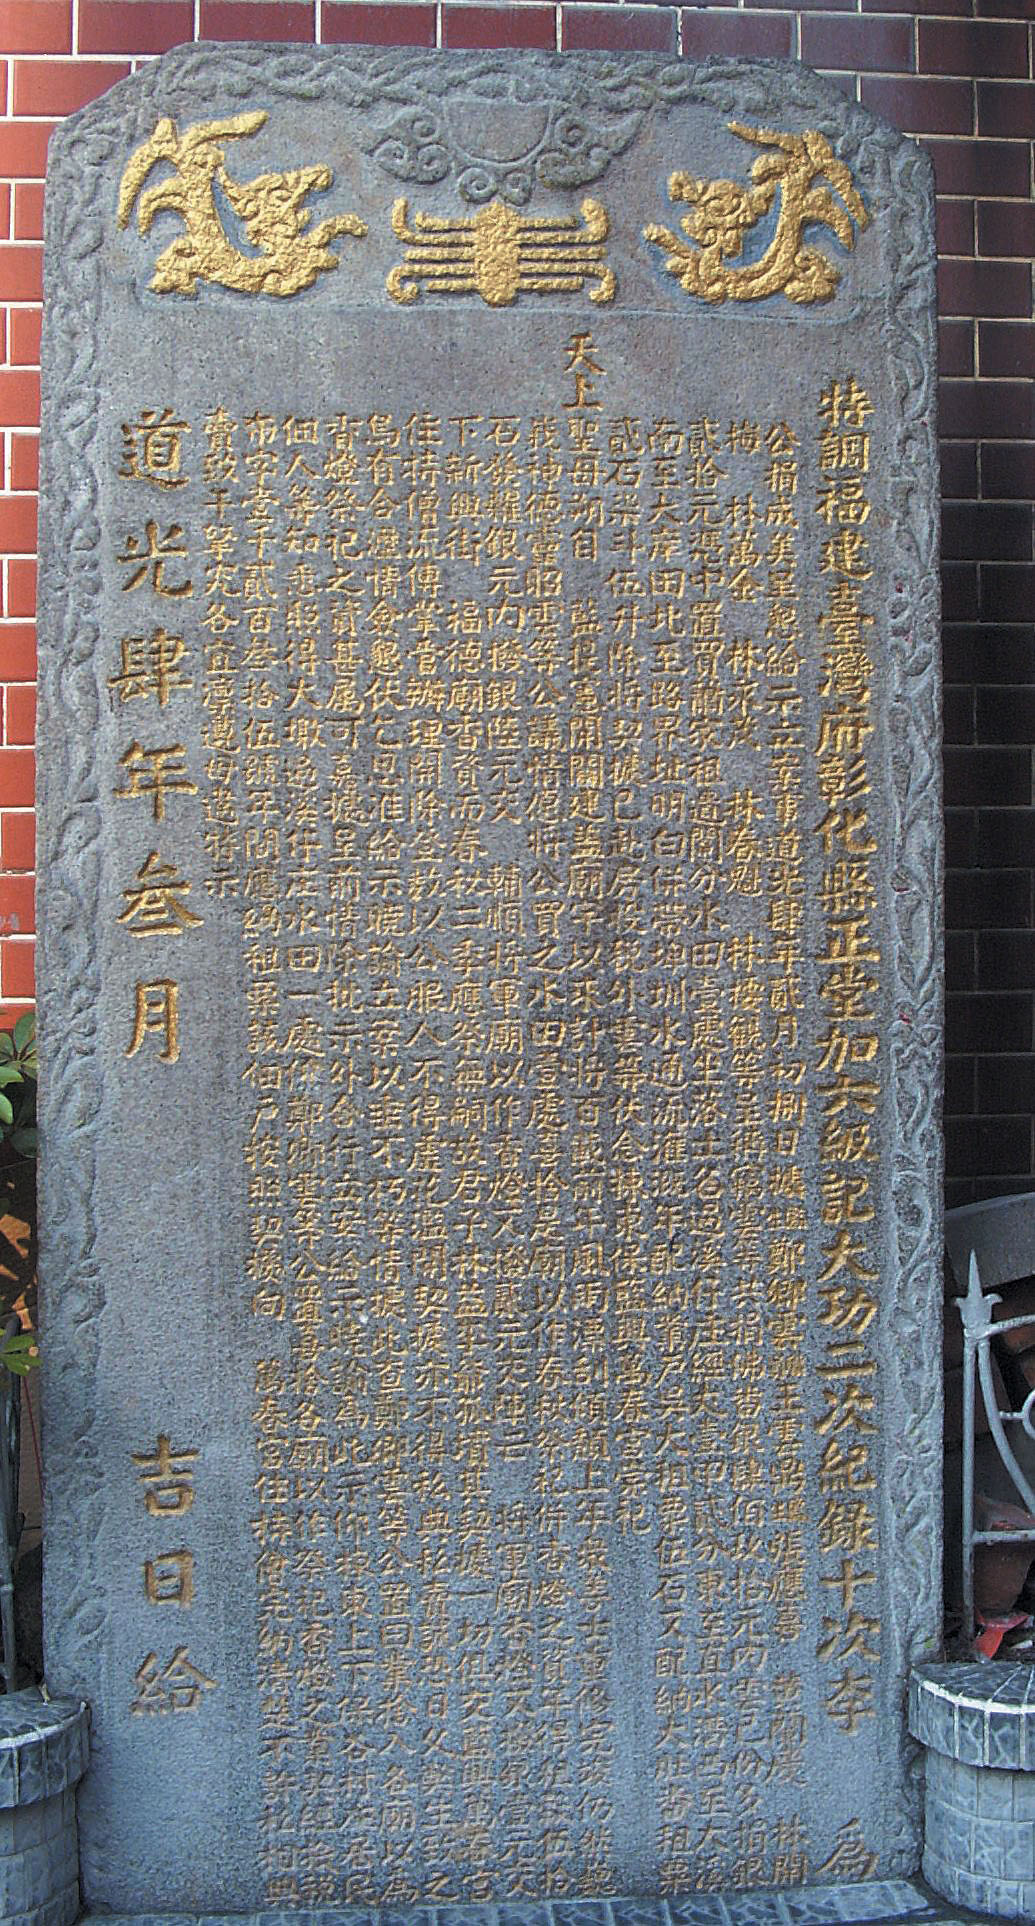 特調福建臺灣府彰化縣正堂加六級記大功二次紀錄十次李 為
公捐成美呈懇給示立案事道光肆年貳月初捌日據 鄭卿雲 王 張應 林開
梅 林萬金 林永茂 林春魁 林 觀等呈稱 雲等共捐佛 銀 佰 拾元內雲己份多捐銀
貳拾元憑中置買蕭家祖遺鬮分水田壹處坐落土名過溪仔庄經丈壹甲貳分東至直水 西至大溪
南至大岸田北至路界址明白併帶埤圳水通流灌溉年配納 戶吳大租粟伍石又配納大肚番租粟
貳石柒斗伍升除將契據已赴房投稅外雲等伏念 東保藍興萬春宮崇祀
天上
聖母 自 藍提憲開闢建蓋廟宇以來計將百載前年風雨漂刮傾頹上年眾等 重修完竣仍然巍
峩神德靈昭雲等公議情愿將公買之水田壹處喜捨是廟以作春秋祭祀併香燈之資年得租 伍拾
石 糶銀元內撥銀陸元交 輔順將軍廟以作香燈又撥 元交 將軍廟香燈又撥銀壹元交
下新興街 福德廟香資而春秋二季應祭無嗣故君子林 孤墳其契據一切俱交藍興萬春宮
住持僧流傳掌管辦理開除登數以公服人不得虛花濫開契據亦不得私典私賣 恐日父 生致之
烏有合瀝情僉懇伏乞恩准給示曉諭立案以垂不朽等情據此查鄭卿雲等公置田業捨入各廟以為
香燈祭祀之資甚屬可嘉據呈前情除批示外合行立案給示曉諭為此示仰 東上下保各村庄居民
佃人等知悉照得大墩過溪仔庄水田一處係鄭卿雲等公置喜捨各廟以作祭祀香燈之業契經
布字壹千貳百叁拾伍號年間應納租粟該佃戶按照契 向 萬春宮住持僧完納清楚不許私相典
賣致干 究各宜凜遵毋違特示
道光肆年叁月 吉日給